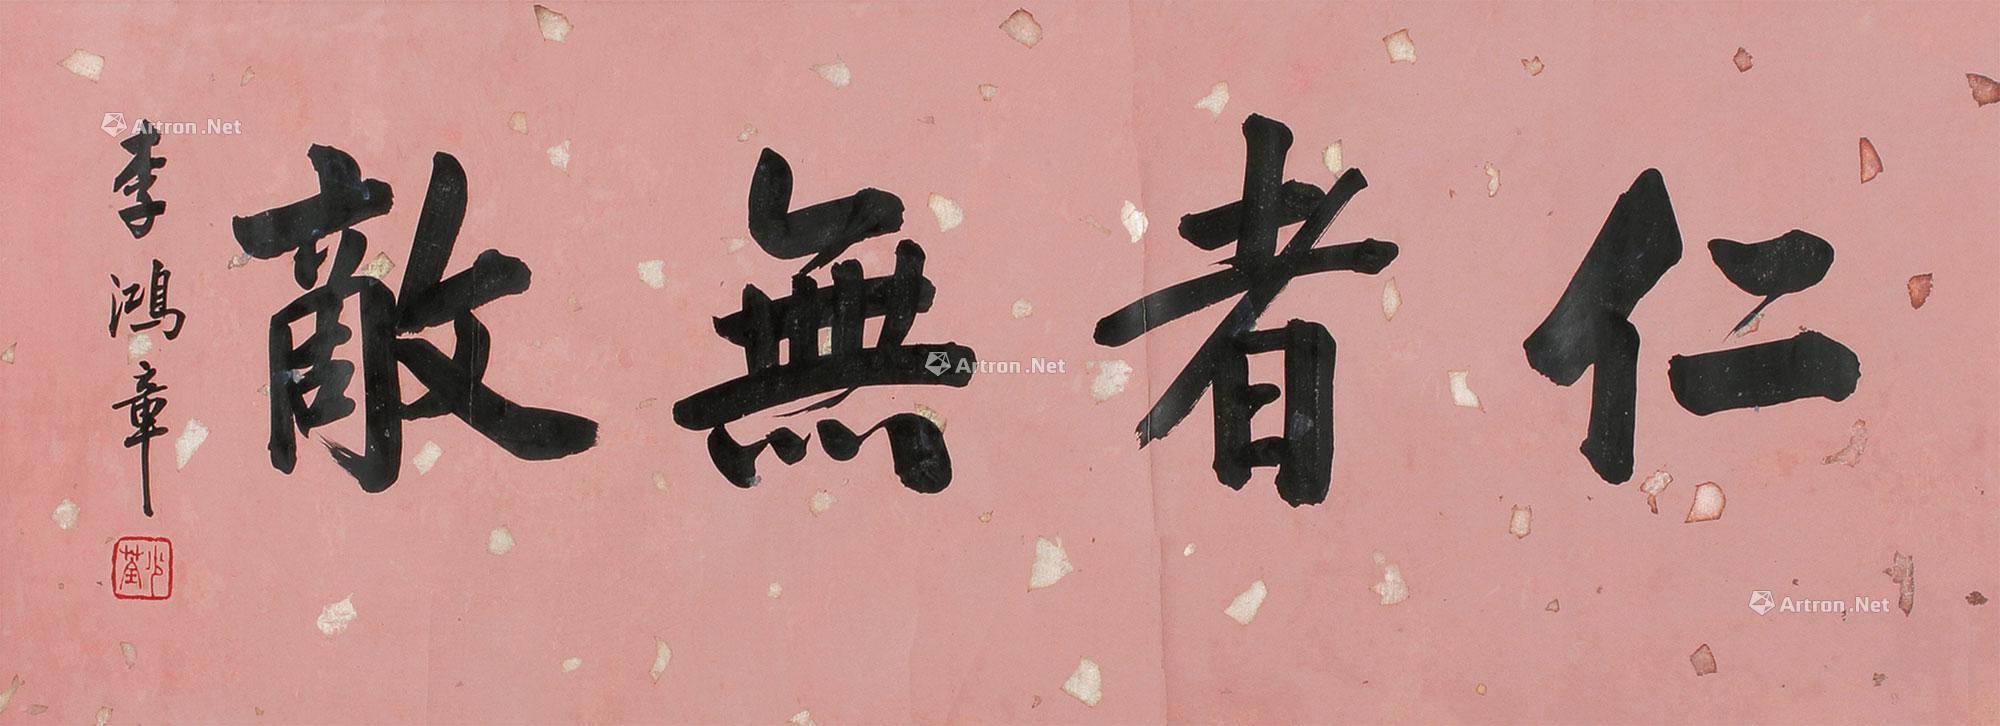 仁者無敵
李鴻章
少荃
Artron.Net
Artron.Net
Artron.Net